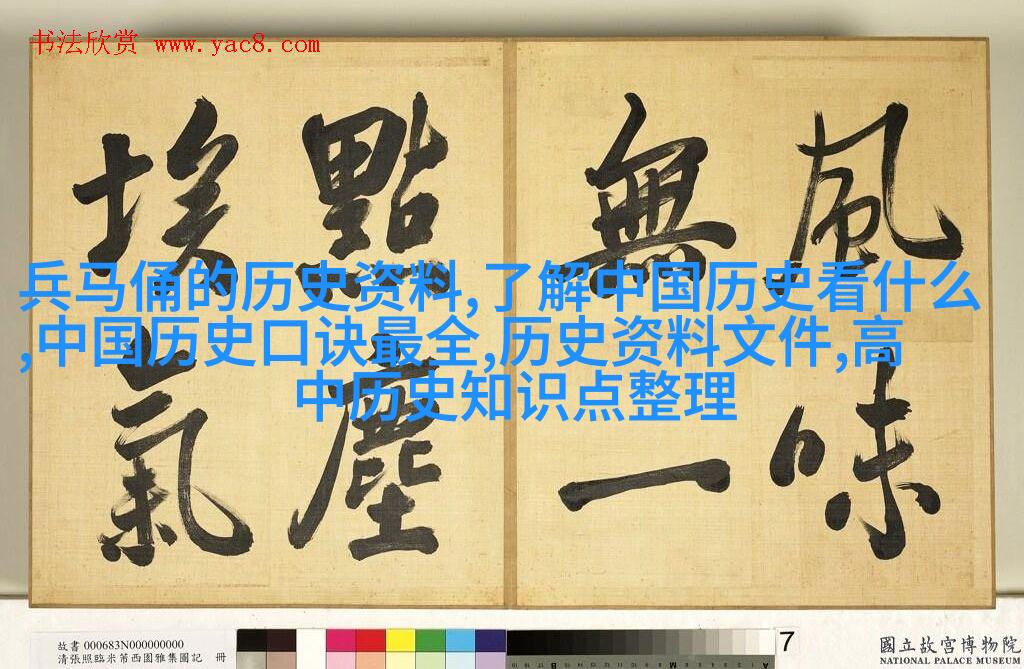 书法欣赏 www.yac8.com
風味
無一
點塵
埃氣
兵马俑的历史资料,了解中国历史看什么
,中国历史口诀最全,历史资料文件,高
中历史知识点整理
故書 000683N000000000
清張照臨米芾西園雅集圖記 冊
7
國立故宮博物院
NATIONAL PALACE MUSEUM